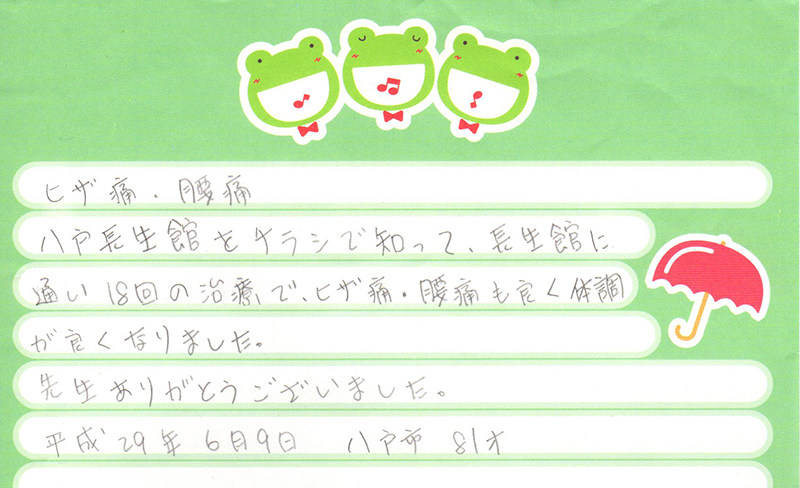 ヒザ痛・腰痛
八戸長生館をチラシで知って、長生館に
通い18回の治療で、ヒザ痛・腰痛も良く体調
が良くなりました。
先生ありがとうございました。
平成29年6月9日 八戸市 81才